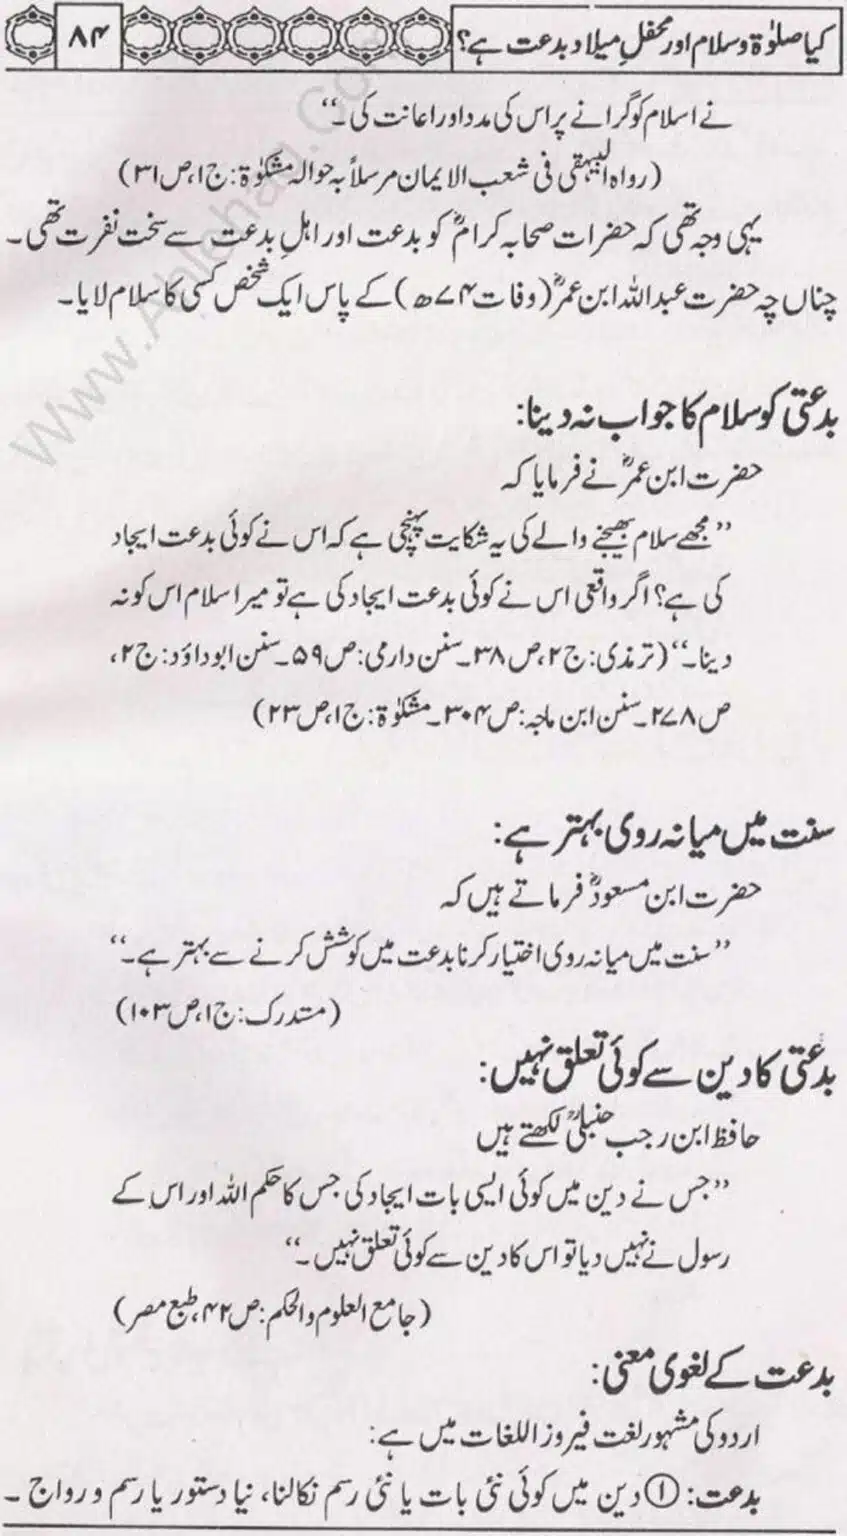 کیا صلوٰۃ و سلام اور محفلِ میلاد بدعت ہے؟ ۸۴
نے اسلام کو گرانے پر اس کی مدد اور اعانت کی۔‘‘
(رواہ البیہقی فی شعب الایمان مرسلاً بہ حوالہ مشکوٰۃ: ج۱، ص۳۱)
یہی وجہ تھی کہ حضرات صحابہ کرامؓ کو بدعت اور اہلِ بدعت سے سخت نفرت تھی۔
چناں چہ حضرت عبداللہ ابن عمرؓ (وفات ۷۴ھ) کے پاس ایک شخص کسی کا سلام لایا۔
بدعتی کو سلام کا جواب نہ دینا:
حضرت ابن عمرؓ نے فرمایا کہ
’’مجھے سلام بھیجنے والے کی یہ شکایت پہنچی ہے کہ اس نے کوئی بدعت ایجاد
کی ہے؟ اگر واقعی اس نے کوئی بدعت ایجاد کی ہے تو میرا سلام اس کو نہ
دینا۔‘‘ (ترمذی: ج۲، ص۳۸۔ سنن دارمی: ص۵۹۔ سنن ابوداؤد: ج۲،
ص۲۷۸۔ سنن ابن ماجہ: ص۳۰۴۔ مشکوٰۃ: ج۱، ص۲۳)
سنت میں میانہ روی بہتر ہے:
حضرت ابن مسعودؓ فرماتے ہیں کہ
’’سنت میں میانہ روی اختیار کرنا بدعت میں کوشش کرنے سے بہتر ہے۔‘‘
(مستدرک: ج۱، ص۱۰۳)
بدعتی کا دین سے کوئی تعلق نہیں:
حافظ ابن رجب حنبلیؒ لکھتے ہیں
’’جس نے دین میں کوئی ایسی بات ایجاد کی جس کا حکم اللہ اور اس کے
رسول نے نہیں دیا تو اس کا دین سے کوئی تعلق نہیں۔‘‘
(جامع العلوم والحکم: ص۴۲، طبع مصر)
بدعت کے لغوی معنی:
اردو کی مشہور لغت فیروز اللغات میں ہے:
بدعت: ① دین میں کوئی نئی بات یا نئی رسم نکالنا، نیا دستور یا رسم و رواج۔
Www.Ahlehaq.Com